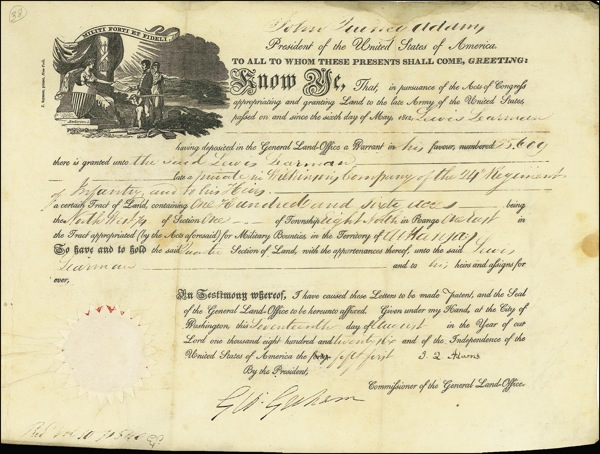 38
MILITI FORTI ET FIDELI
John Quincy Adams
President of the United States of America.
TO ALL TO WHOM THESE PRESENTS SHALL COME, GREETING:
Know Ye, That, in pursuance of the Acts of Congress
appropriating and granting Land to the late Army of the United States,
passed on and since the sixth day of May, 1812, Lewis Learman
having deposited in the General Land-Office a Warrant in his favour, numbered 25.609
there is granted unto the said Lewis Learman
late a private in Company of the 24th Regiment
of Infantry, and to his Heirs
a certain Tract of Land, containing One Hundred and sixty acres being
the North West 1/4 of Section One of Township eight North in Range One East in
the Tract appropriated (by the Acts aforesaid) for Military Bounties, in the Territory of Arkansas
To have and to hold the said Quarter Section of Land, with the appurtenances thereof, unto the said Lewis
Learman and to his heirs and assigns for
ever,
In Testimony whereof, I have caused these Letters to be made Patent, and the Seal
of the General Land-Office to be hereunto affixed. Given under my Hand, at the City of
Washington, this Seventeenth day of August in the Year of our
Lord one thousand eight hundred and twenty six and of the Independence of the
United States of America the fifty first J. Q. Adams
By the President,
Commissioner of the General Land-Office.
Geo. Graham